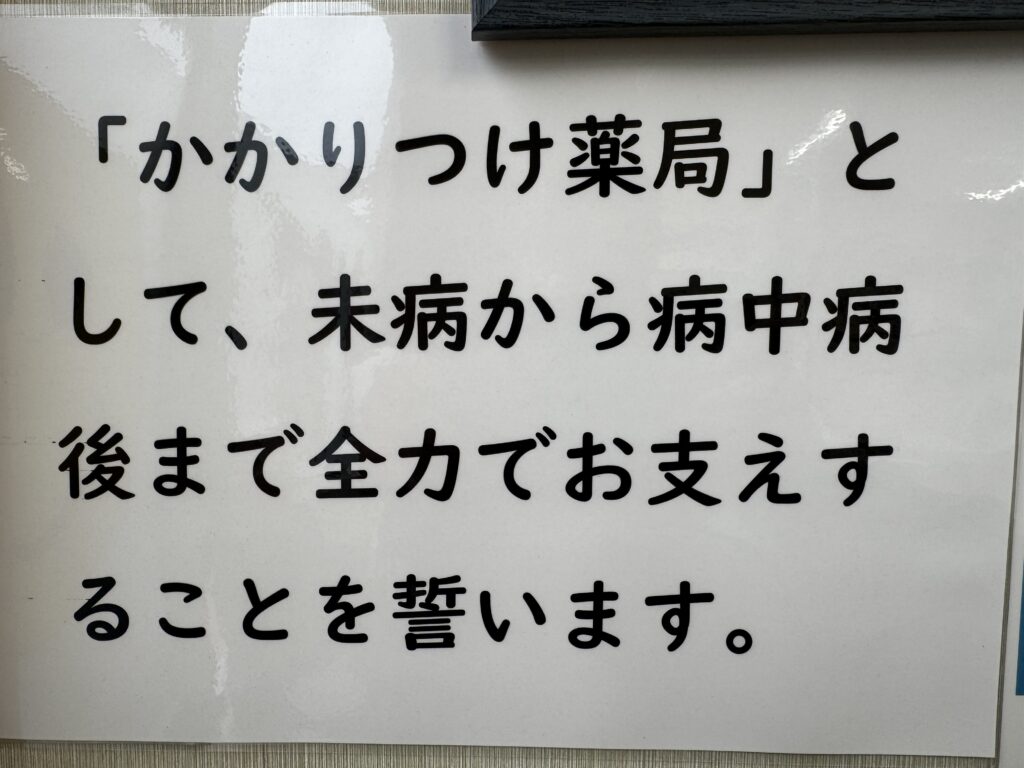 「かかりつけ薬局」と
して、未病から病中病
後まで全力でお支えす
ることを誓います。